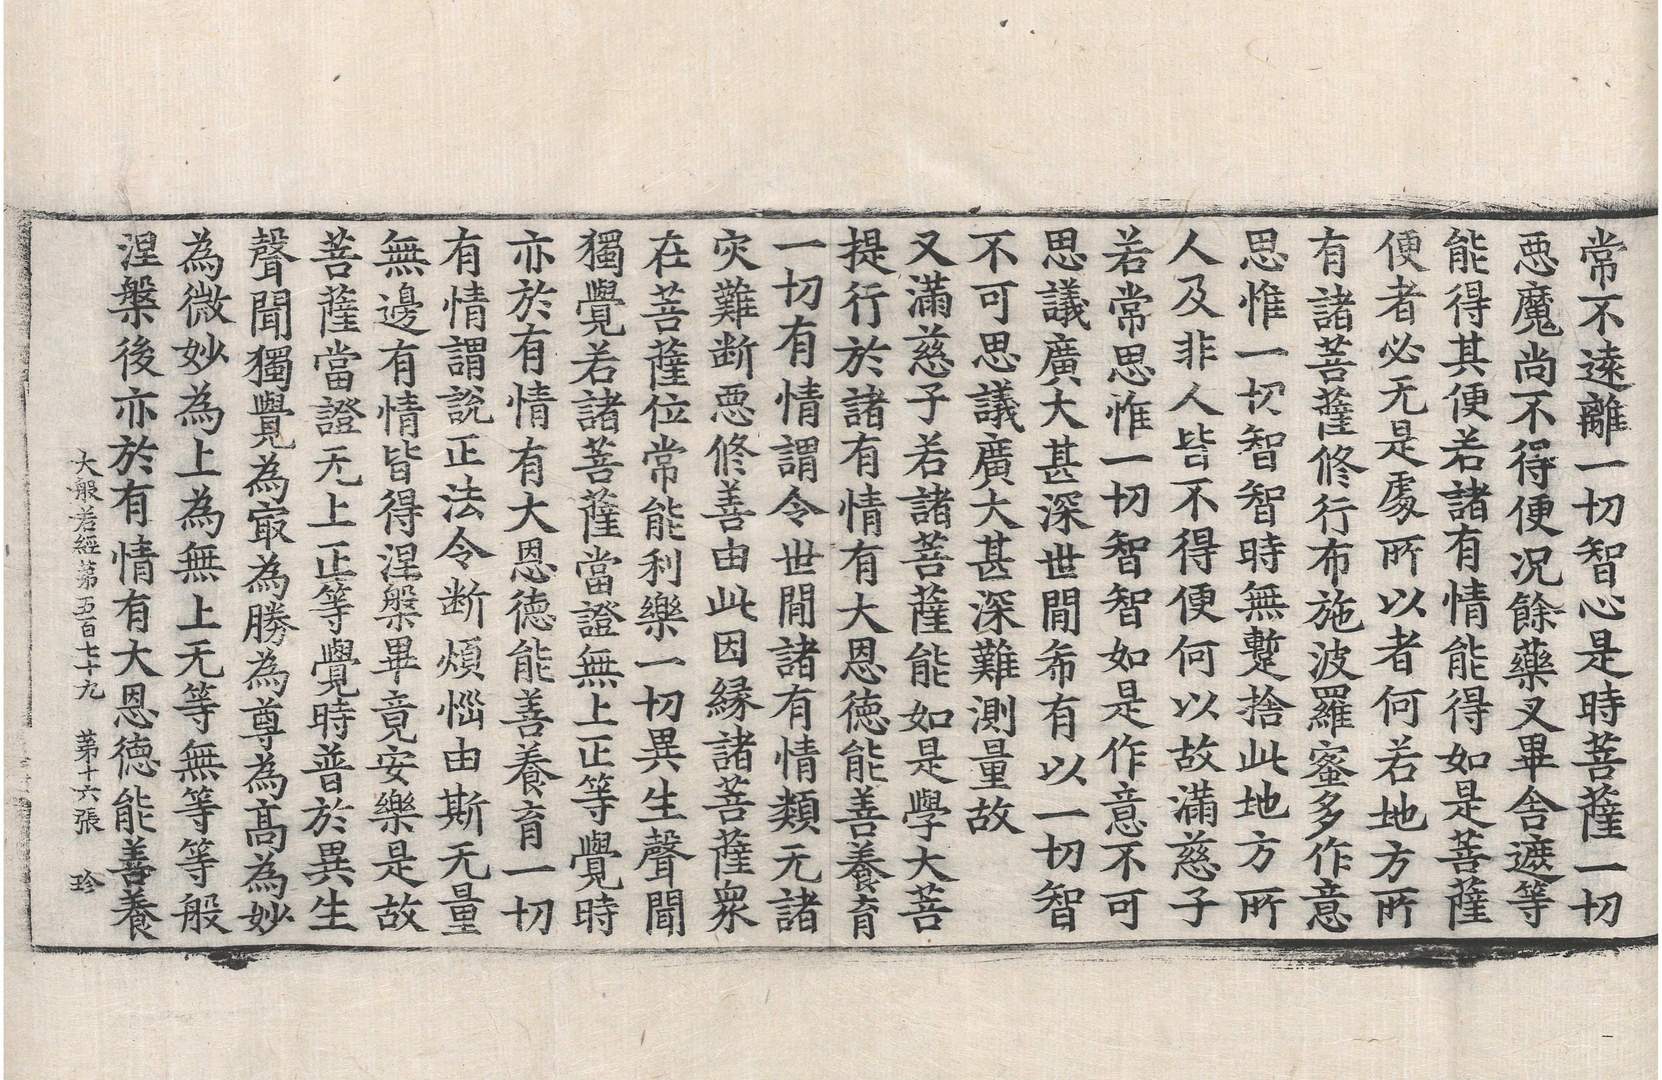 常不遠離一切智心是時菩薩一切
惡魔尚不得便况餘藥叉畢舍遮等
能得其便若諸有情能得如是菩薩
便者必无是處所以者何若地方所
有諸菩薩修行布施波羅蜜多作意
思惟一切智智時無蹔捨此地方所
人及非人皆不得便何以故滿慈子
若常思惟一切智智如是作意不可
思議廣大甚深世間希有以一切智
不可思議廣大甚深難測量故
又滿慈子若諸菩薩能如是學大菩
提行於諸有情有大恩德能善養育
一切有情謂令世間諸有情類无諸
灾難断惡修善由此因緣諸菩薩衆
在菩薩位常能利樂一切異生聲聞
獨覺若諸菩薩當證無上正等覺時
亦於有情有大恩德能善養育一切
有情謂說正法令断煩惱由斯无量
無邊有情皆得涅槃畢竟安樂是故
菩薩當證无上正等覺時普於異生
聲聞獨覺為㝡為勝為尊為高為妙
為微妙為上為無上无等無等等般
涅槃後亦於有情有大恩德能善養
大般若經第五百七十九 第十六張 珍